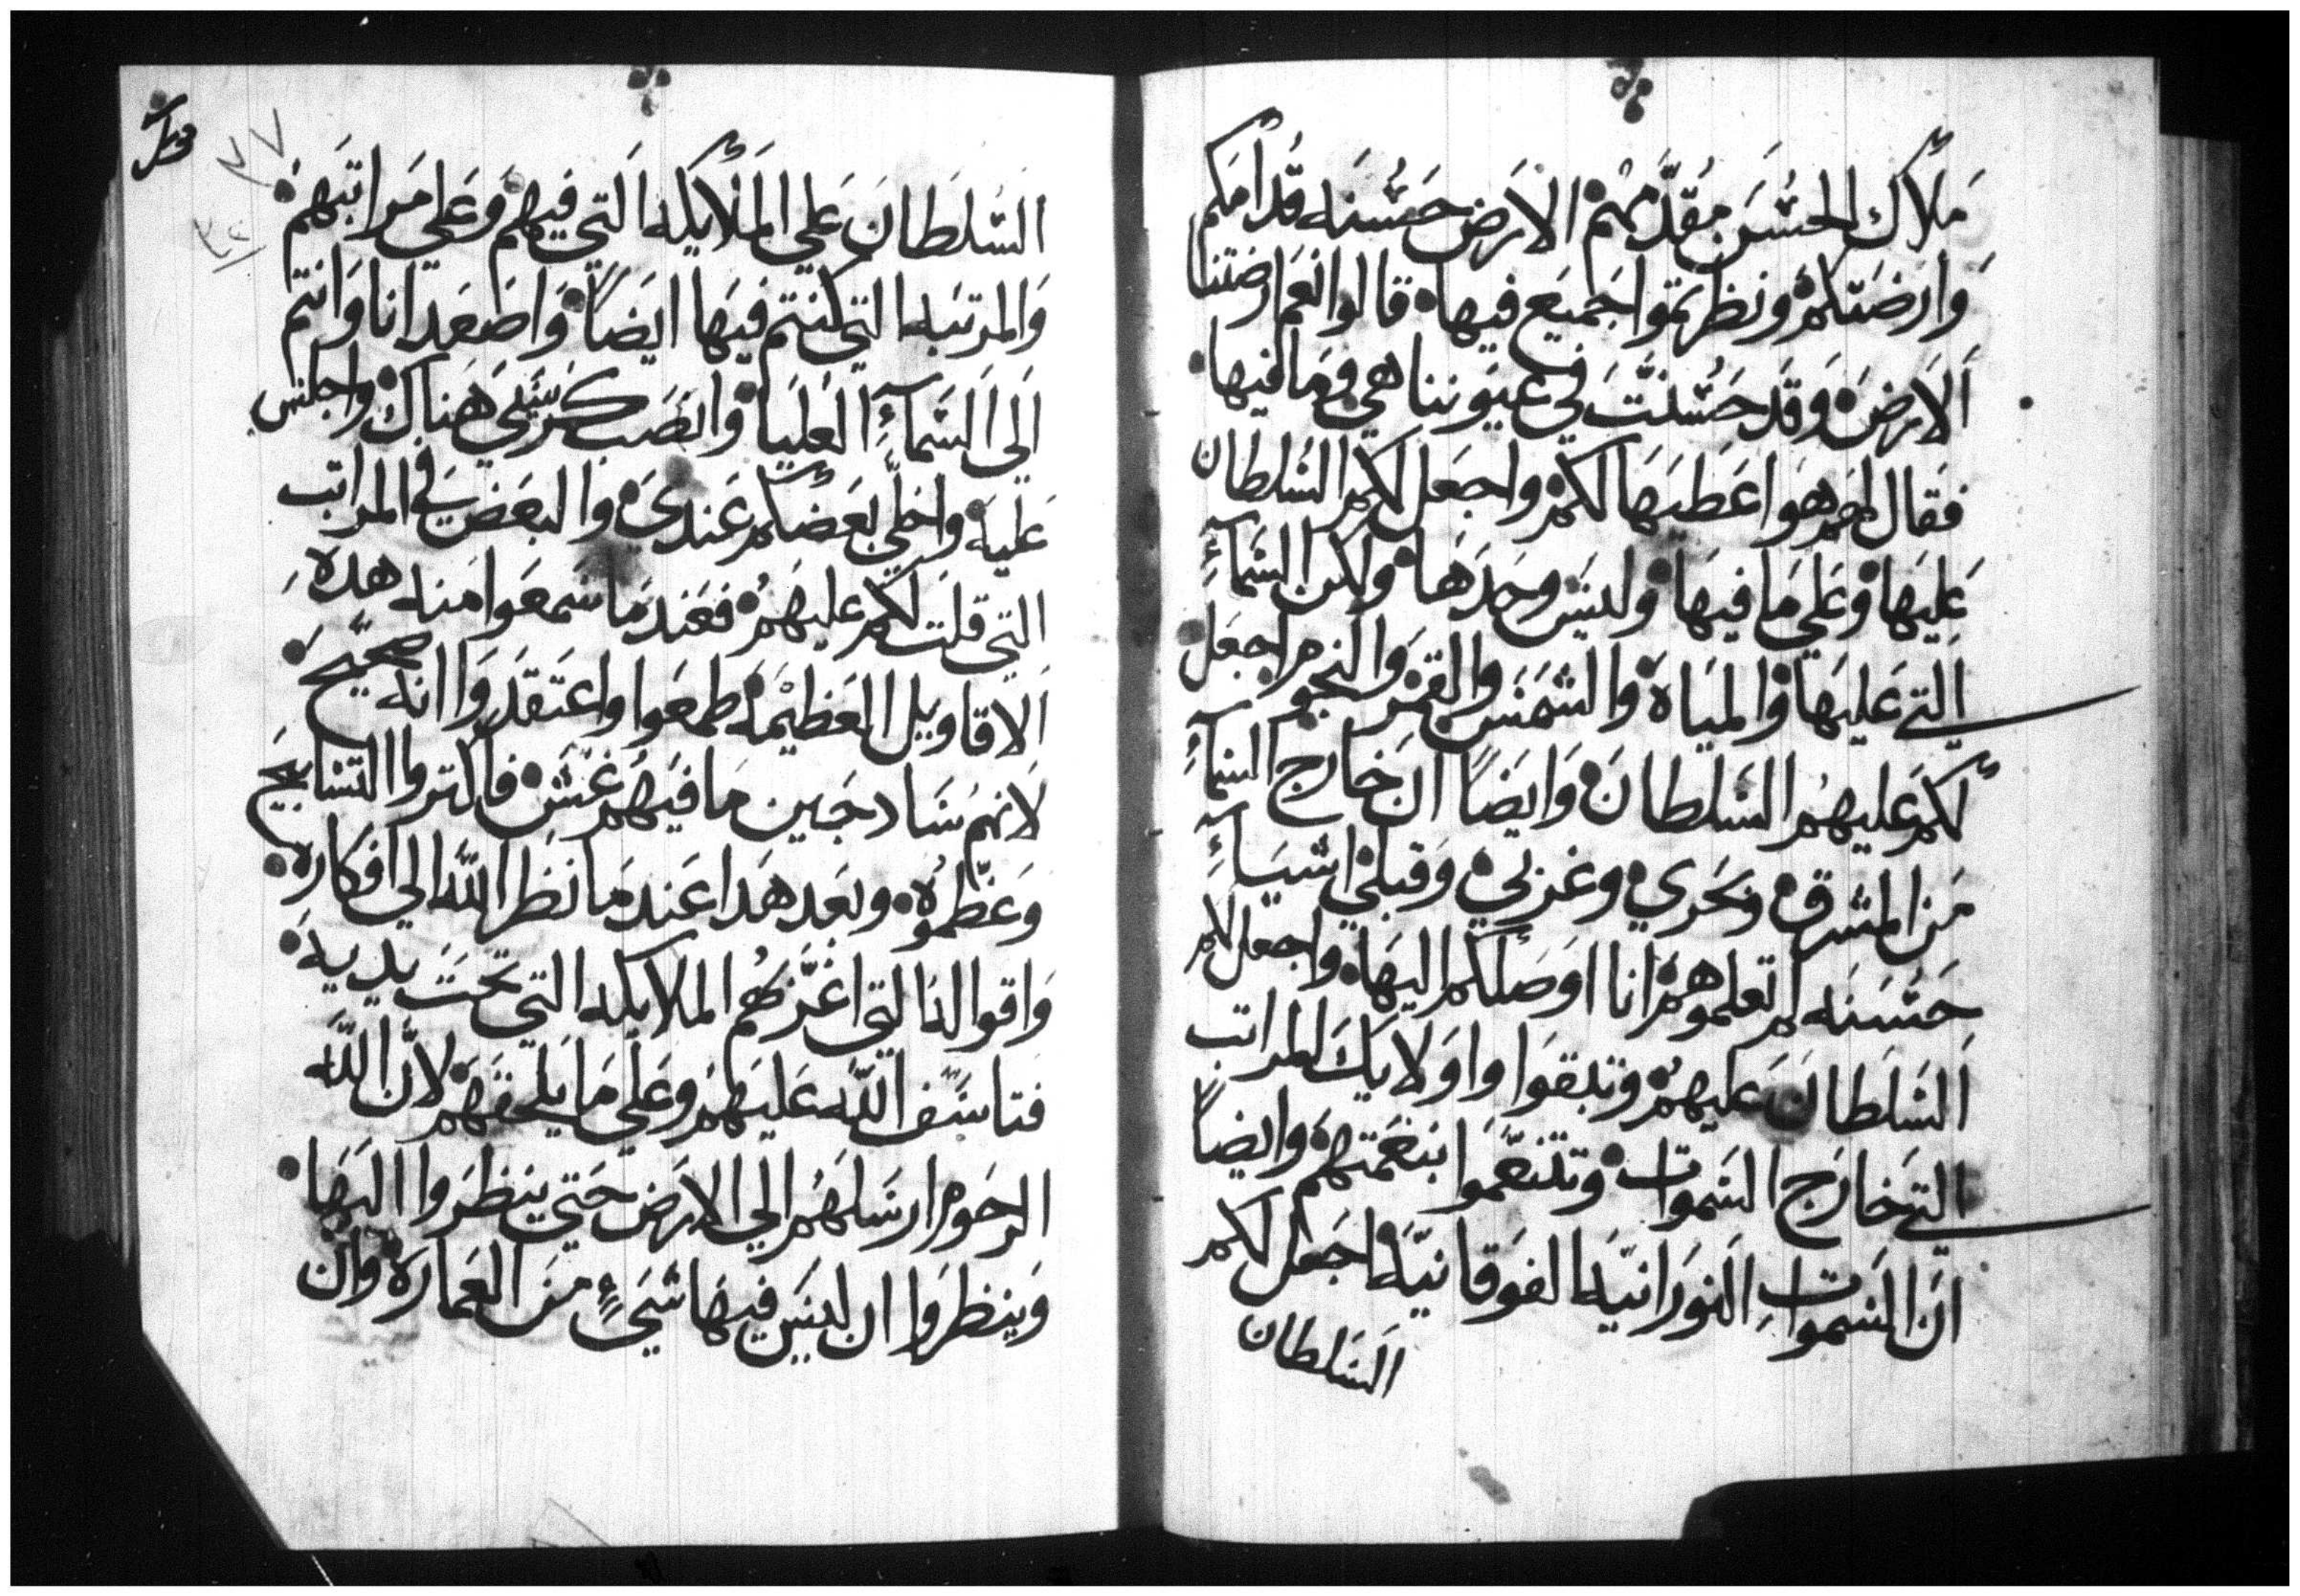 ملاك الحسن مقدمهم الارض حسنه قدامكم
وارضتكم ونظرتموا جميع فيها قالوا نعم ارضتنا
الارض وقد حسنت في عيوننا هي وما فيها
فقال لهم هوا عطيها لكم واجعل لكم السلطان
عليها وعلي ما فيها وليس وحدها ولكن السمآء
التي عليها والمياه والشمس والقمر والنجوم اجعل
لكم عليهم السلطان وايضاً ان خارج السمآء
من المشرق وبحري وغربي وقبلي اشيآء
حسنه لم تعلموهم انا اوصلكم اليها واجعل لكم
السلطان عليهم وتبقوا واولايك المراتب
التي خارج السموات وتتنعموا بنعمتهم وايضاً
ان السموات النورانيه الفوقانيه اجعل لكم
السلطان
السلطان علي الملايكه التي فيهم وعلي مراتبهم
والمرتبه التي كنتم فيها ايضاً واصعد انا وانتم
الي السمآء العليا وانصب كرسيي هناك واجلس
عليه واخلي بعضكم عندي والبعض في المراتب
التي قلت لكم عليهم فعند ما سمعوا منه هده
الاقاويل العظيمه طمعوا واعتقدوا انه صحيح
لانهم سادجين ما فيهم غش فاكتروا التسابيح
وعظموه وبعد هدا عند ما نظر الله الي افكاره
واقواله التي اغر بهم الملايكه التي تحت يديه
فتاسف الله عليهم وعلي ما يلحقهم لان الله
الرحوم ارسلهم الي الارض حتي ينظروا اليها
وينظروا ان ليس فيها شيء من العماره وان